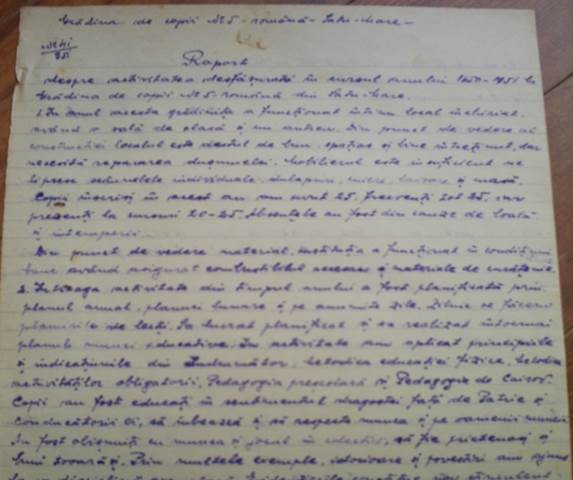 Grădina de copii Nr 5 - română - Satu-Mare -
Nr 41
951
Raport
despre activitatea desfășurată în cursul anului 1950-1951 la
Grădina de copii Nr 5 - română din Satu-Mare.
1. În anul acesta grădinița a funcționat într'un local închiriat,
având o sală de clasă și un antreu. Din punct de vedere al
construcției localul este destul de bun, spațios și bine întreținut, dar
necesită repararea dușumelei. Mobilierul este insuficient ne
lipsesc scăunelele individuale, dulapuri, cuiere, lavoar și masă.
Copii înscriși în acest an au avut 25, frecvenți tot 25, iar
prezenți la cursuri 20-25. Absențele au fost din cauze de boală
și intemperii.
Din punct de vedere material, instituția a funcționat în condițiuni
bune având asigurat combustibilul necesar și materiale de curățenie.
2. Întreaga activitate din timpul anului a fost planificată prin
planul anual, planuri lunare și pe anumite zile. Zilnic se făceau
planurile de lecții. Sa lucrat planificat și sa realizat întocmai
planul muncii educative. În activitate am aplicat principiile
și indicațiunile din Îndrumător, Metodica educației fizice, Metodica
activităților obligatorii, Pedagogia preșcolară și Pedagogia de Cairov.
Copii au fost educați în sentimentul dragostei față de Patrie și
conducătorii ei, să iubească și să respecte munca și pe oamenii muncii.
Au fost obișnuiți cu munca și jocul în colectiv, să fie prietenoși și
buni tovarăși. Prin multele exemple, istorioare și povestiri am ajuns